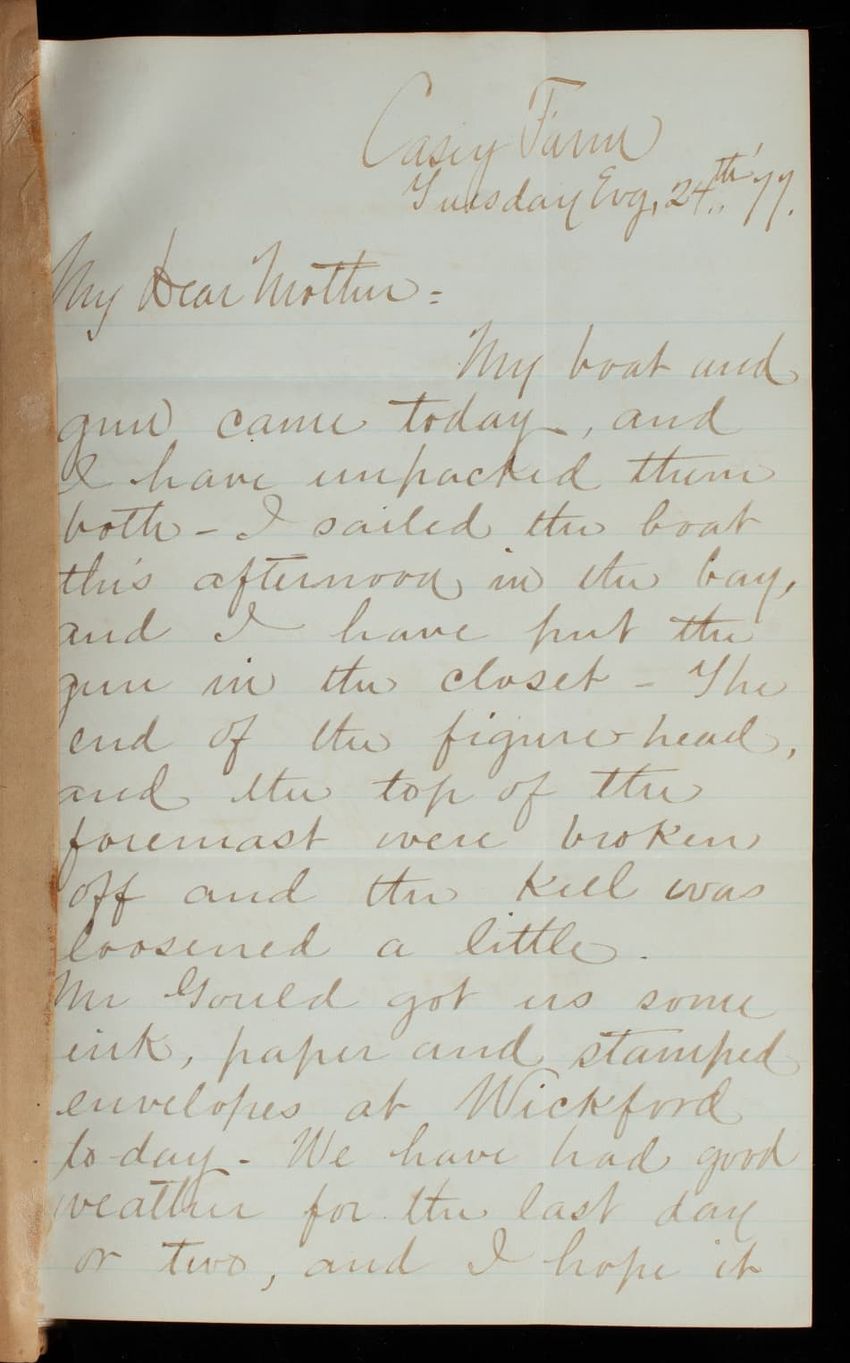 Casey Farm
Tuesday Evg, 24th '77.
My Dear Mother =
My boat and
gun came today, and
I have unpacked them
both - I sailed the boat
this afternoon in the bay,
and I have put the
gun in the closet - The
end of the figure-head,
and the top of the
foremast were broken
off and the keel was
loosened a little.
Mr Gould got us some
ink, paper and stamped
envelopes at Wickford
to-day - We have had good
weather for the last day
or two, and I hope it